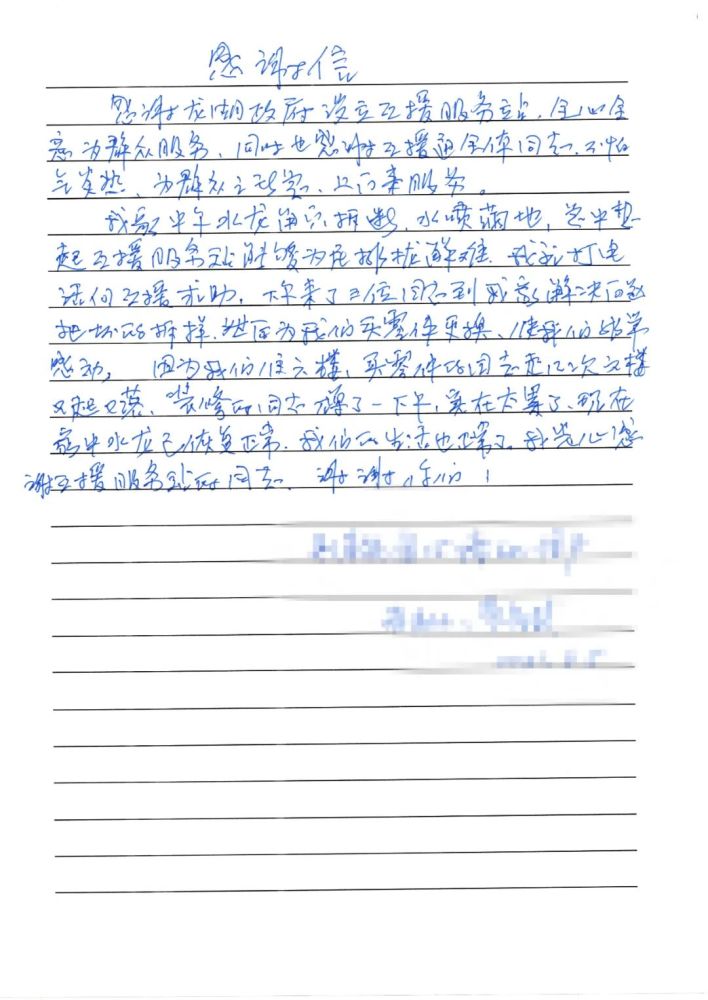 感谢信
感谢龙湖政府设立互援服务站，全心全
意为群众服务，同时也感谢互援通全体同志，不怕
炎热、为群众服务。
我家中午水龙角突断，水喷满地，
起互援服务站能够为居排忧解难，我就打电
话向互援求助，下午来了三位同志到我家解决问题
把坏的拆掉，进而为我们买零件更换，使我们非常
感动，因为我们住六楼，买零件的同志走了二次六楼
又起又落，装修的同志蹲了一下午，实在太累了，现在
家中水龙已恢复正常，我们的生活也正常了，我忠心感
谢互援服务站的同志，谢谢你们！